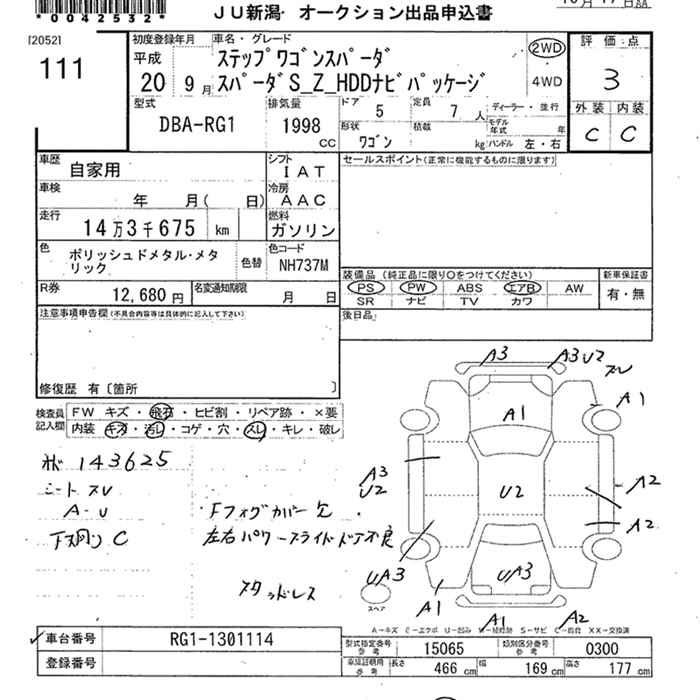 *0042532*
JU新潟 オークション出品申込書
[2052]
111
初度登録年月
平成
20 9月
車名・グレード
ステップワゴンスパーダ
スパーダS_Z_HDDナビパッケージ
2WD
4WD
評価点
3
外装 内装
C C
型式
DBA-RG1
排気量
1998 CC
ドア 5
定員 7 人
形状 ワゴン
積載 kg
ディーラー・並行
モデル年式 年
ハンドル 左・右
車歴 自家用
シフト IAT
車検 年 月( 日)
冷房 AAC
走行 14万3千675 km
燃料 ガソリン
色 ポリッシュドメタル・メタリック
色替
色コード NH737M
R券 12,680円
名変通知期限 月 日
セールスポイント(正常に機能するものに限ります)
装備品(純正品に限り〇をつけてください)
PS PW ABS エアB AW
SR ナビ TV カワ
新車保証書
有・無
後日品
注意事項申告欄(不具合内容等は具体的に記入して下さい)
修復歴 有〔箇所 〕
検査員記入欄
FW キズ・飛石・ヒビ割・リペア跡・×要
内装 キズ・汚レ・コゲ・穴・スレ・キレ・破レ
143625
シートスレ
A-U
下廻りC
Fフォグカバー欠
左右パワースライドドア不良
スタッドレス
A3
A3U2
A1
A1
A3
U2
U2
A2
A2
UA3
UA3
A1
A1
A2
スペア
A-キズ E-エクボ U-凹み W-補修跡 S-サビ C-腐食 XX-交換済
車台番号 RG1-1301114
登録番号
型式指定番号 参考 15065
類別区分番号 参考 0300
車庫証明用 参考 長さ 466 cm 幅 169 cm 高さ 177 cm